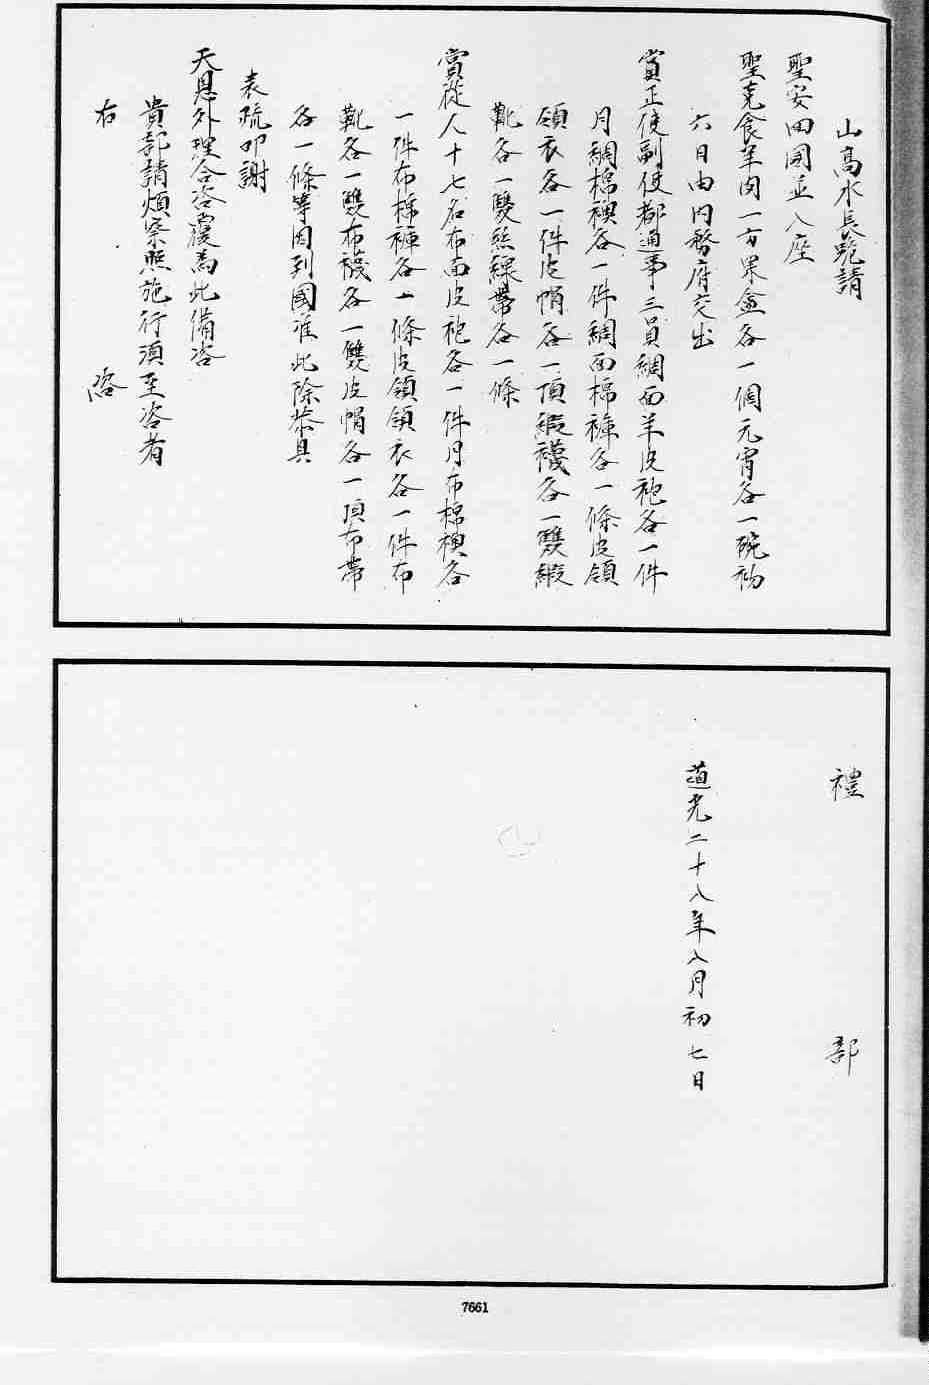 山高水長跪請
聖安回國並入座
聖克食羊肉一方果盒各一個元宵各一碗初
六日由内務府交出
賞正使副使都通事三員綢面羊皮袍各一件
月綢棉襖各一件綢面棉褲各一條皮領
領衣各一件皮帽各一頂緞襪各一雙緞
靴各一雙絲線帶各一條
賞從人十七名布面皮袍各一件月布棉襖各
一件布棉褲各一條皮領領衣各一件布
靴各一雙布襪各一雙皮帽各一頂布帶
各一條等因到國准此除恭具
表疏叩謝
天恩外理合咨覆為此備咨
貴部請煩察照施行須至咨者
右咨
禮部
道光二十八年八月初七日
7661